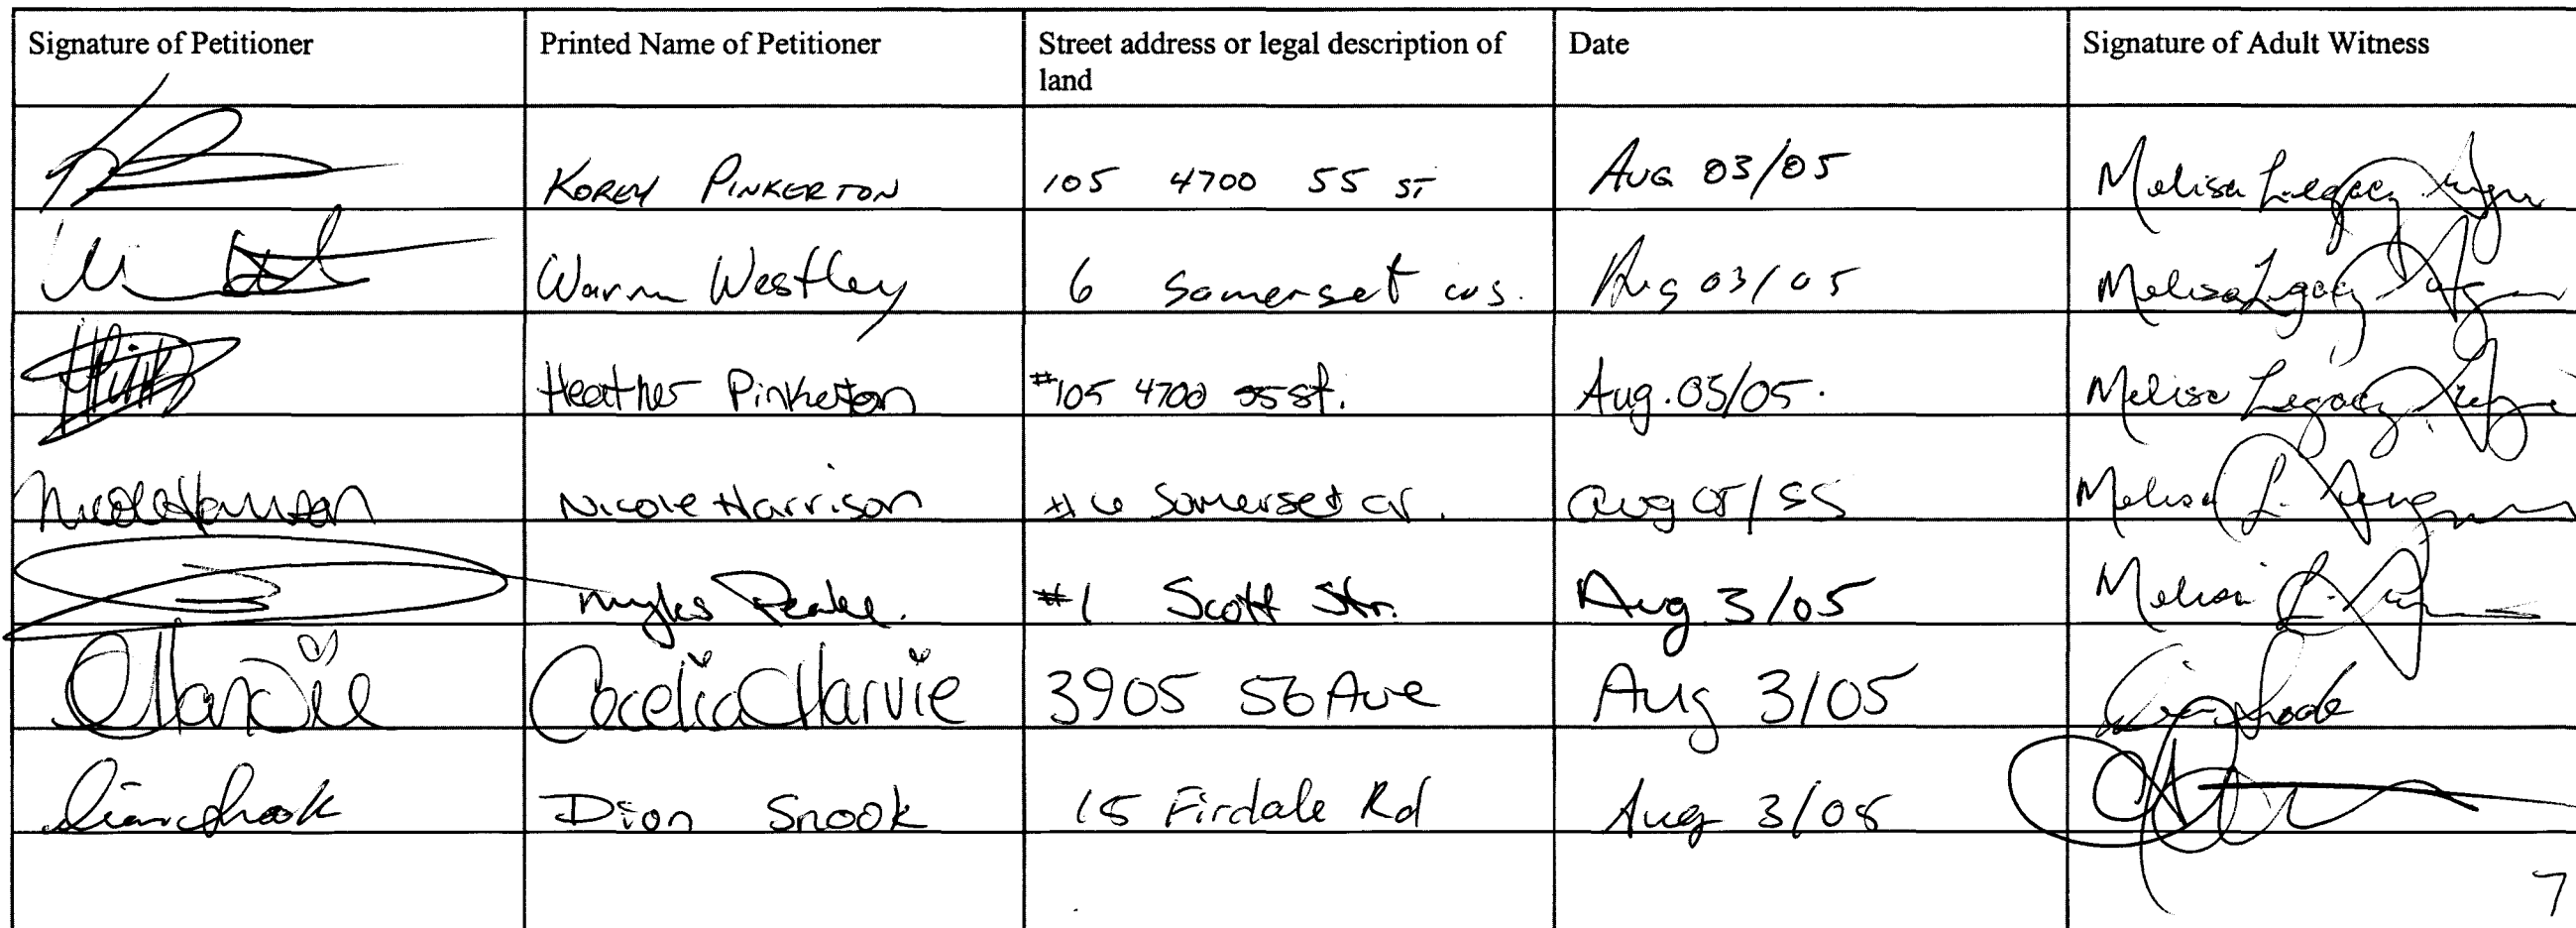 Signature of Petitioner Printed Name of Petitioner Street address or legal description of Date Signature of Adult Witness
land
KOREY PINKERTON 105 4700 55 ST AUG 03/05 Melisa Legacy
Westley 6 Somerset Aug 03/05 Melisa Legacy
Heather Pinkerton #105 4700 55 st. Aug. 03/05. Melisa Legacy
Nicole Harrison Nicole Harrison #6 Somerset cr. Aug Melisa L.
Myles #1 Scott Str. Aug 3/05 Melisa L.
CHarvie Cecelia Harvie 3905 56 Ave Aug 3/05 Dion Snook
Dion Snook Dion Snook 15 Firdale Rd Aug 3/05
7